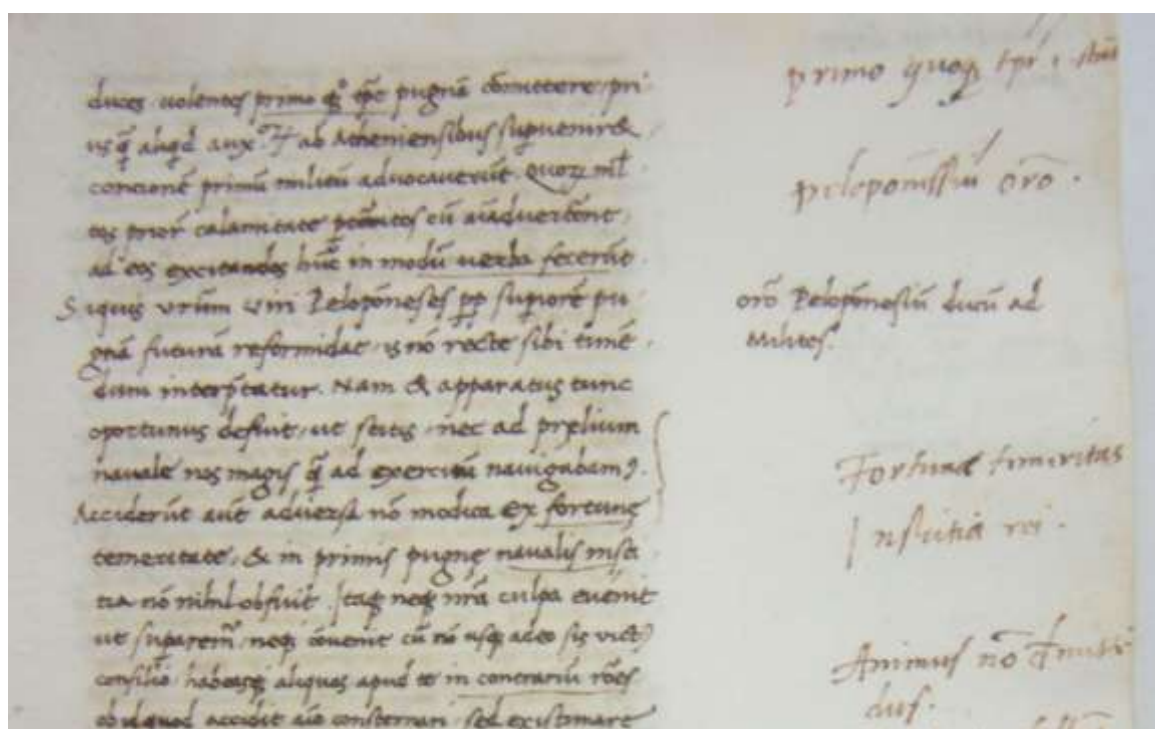 duces uolentes primo qq tp̄e pugnā cōmittere pri
us q̄ aliqd aux ab Atheniensibus supueniret
concionē primū militū aduocauerūt. Quoꝝ ml̄
tos priori calamitate cū aīaduerterēt
ad eos excitandos hūc in modū uerba fecerūt.
Siquis urūm uiri Peloponeses pp superiorē pu
gnā futurā reformidat is nō recte sibi timē
dum interp̄tatur. Nam & apparatus tunc
oportunus defuit, ut scitis, nec ad pręlium
nauale nos magis q̄ ad exercitū nauigabam9.
Acciderūt aūt aduersa nō modica ex fortunę
temeritate, & in primis pugnę naualis insci
tia nō nihil obfuit. Itaq neq nr̄a culpa euēnit
ut supare᷒m, neq cōuenit cū nō usq adeo sis uict9
consilio habeasq aliquas apud te in contrariū rōes
ob id quod accidit aīo consternari sed existimare
primo quoq tp̄r
peleponissiū orō.
orō Peloponesiū ducū ad
Milites.
Fortunae timiritas
Inscitia rei.
Animus nō
dus.